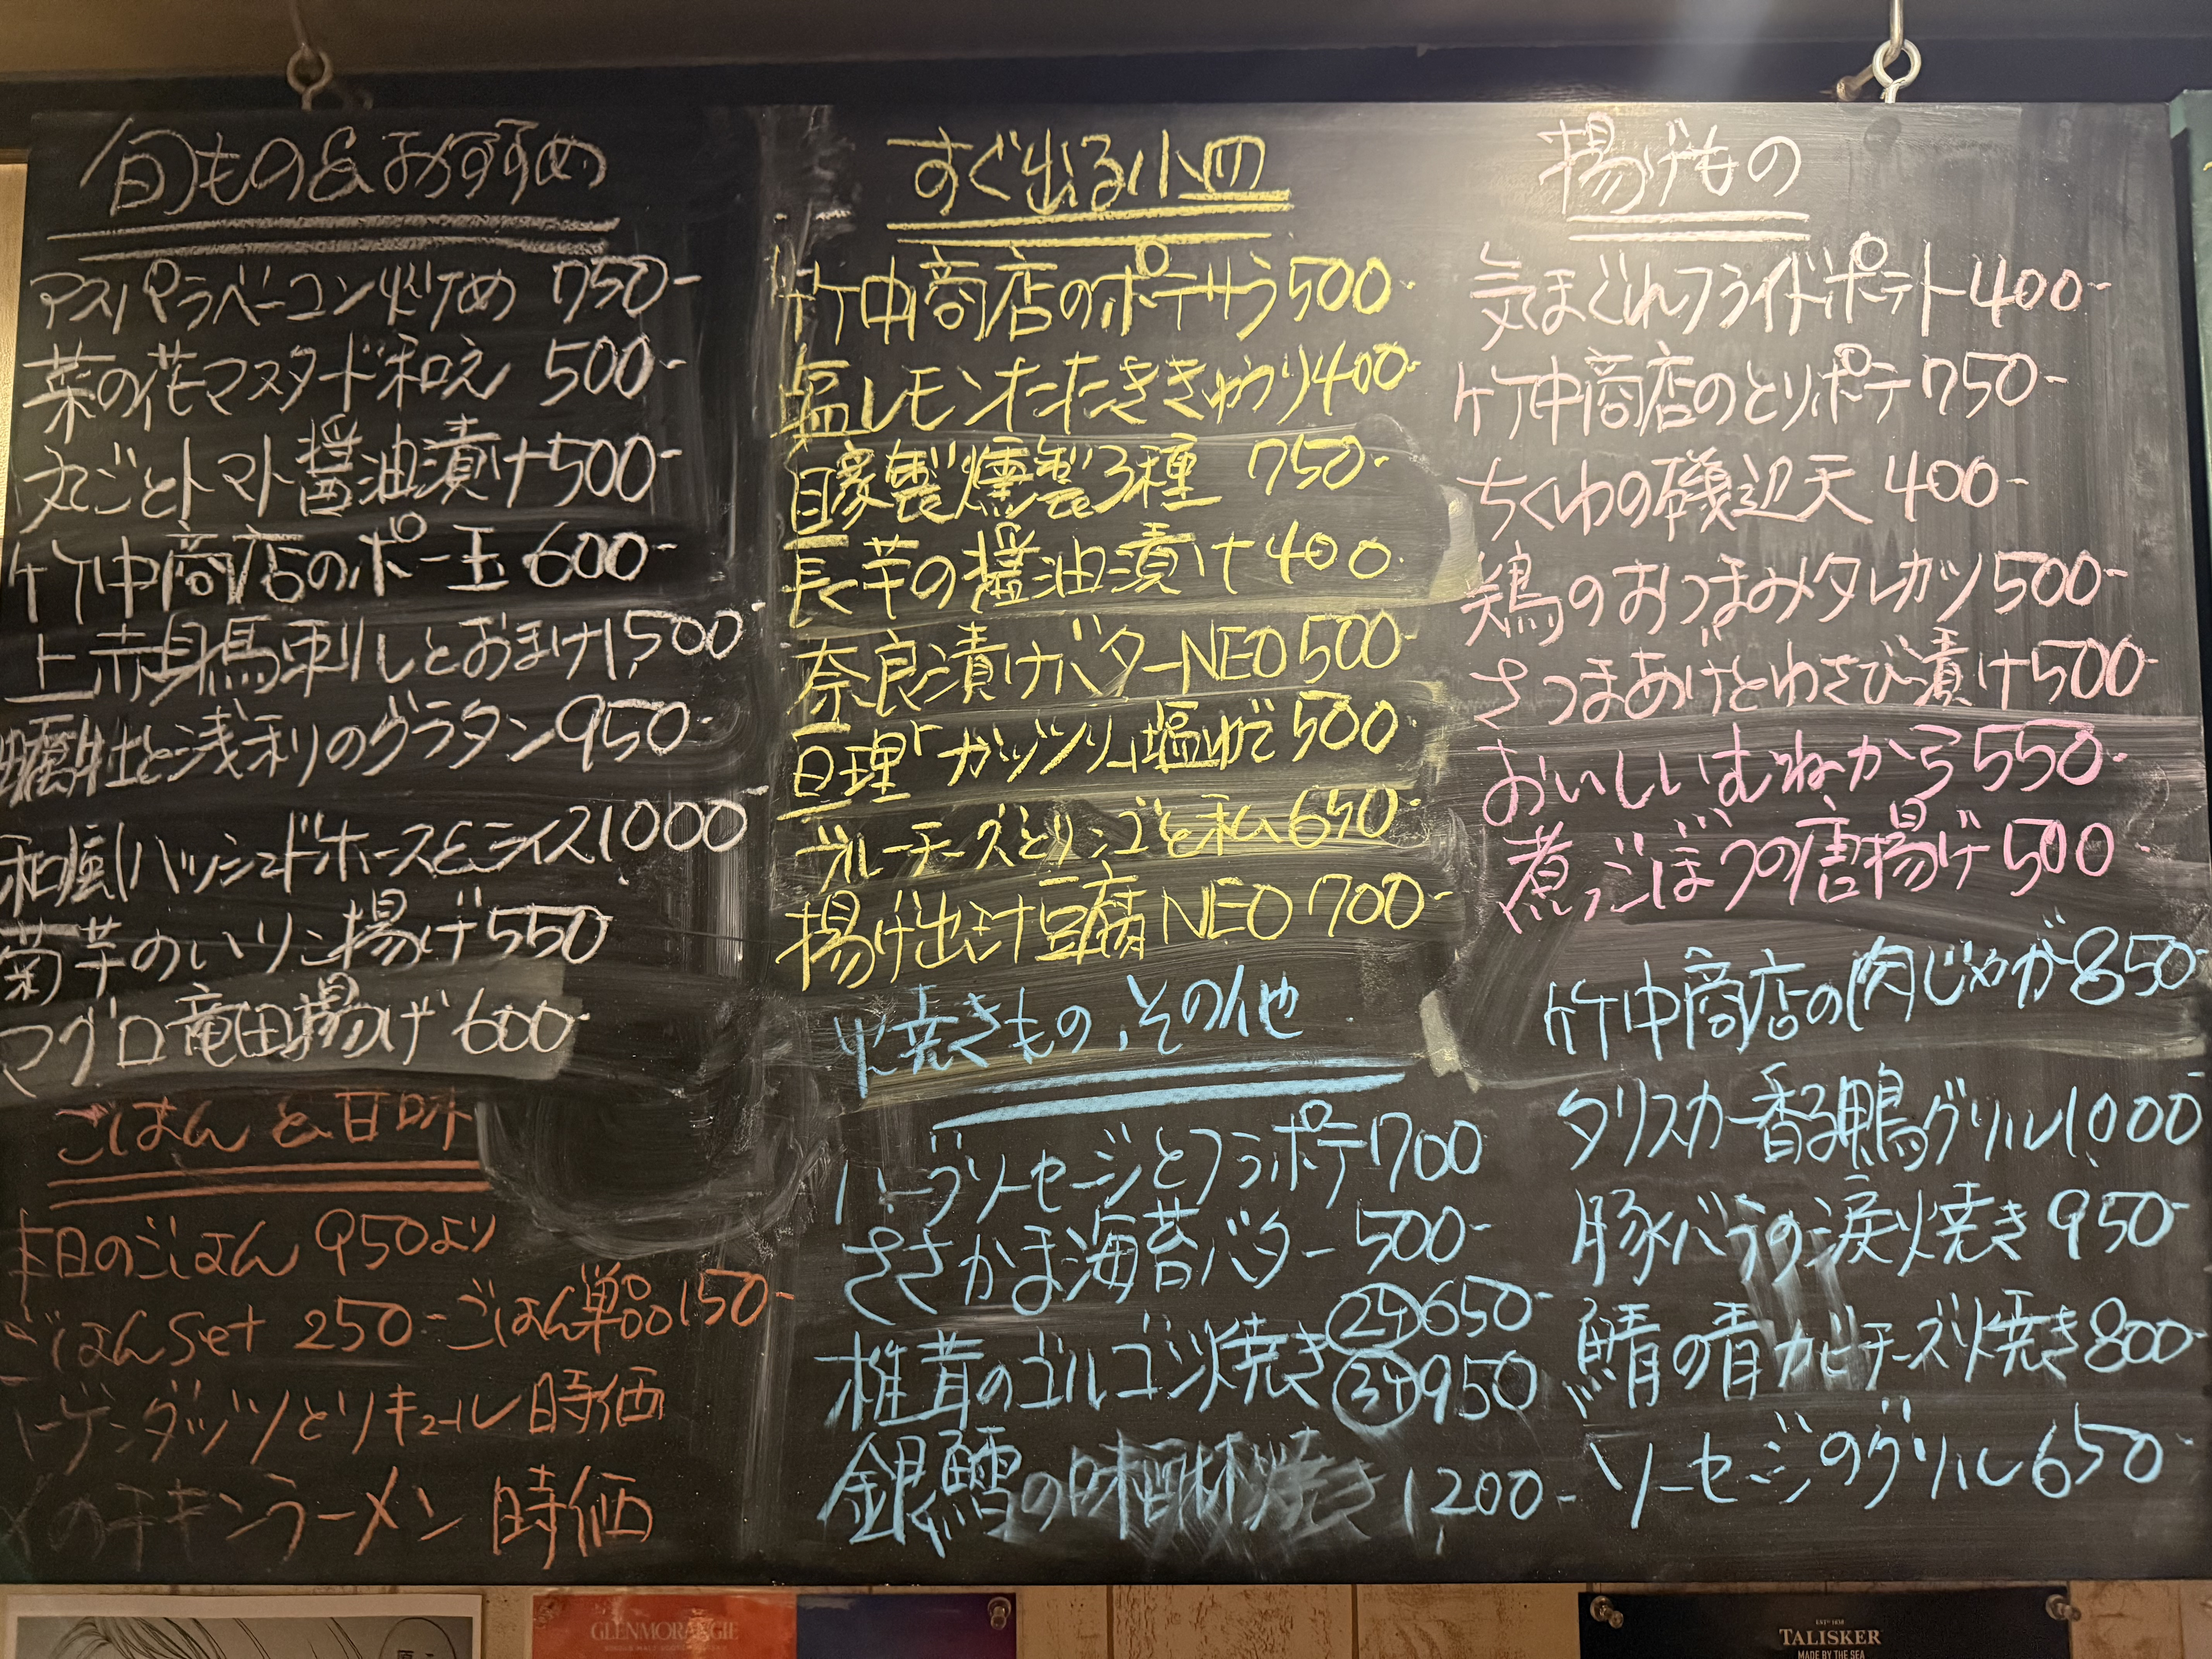 旬もの&おすすめ
アスパラベーコン炒め 750-
菜の花マスタード和え 500-
丸ごとトマト醤油漬け500-
竹中商店のポー玉 600-
上赤身馬刺しとおまけ1,500-
牡蠣と浅利のグラタン950-
和風ハッシュドホースとライス1000-
菊芋のいりこ揚げ550
マグロ竜田揚げ600-
ごはんと甘味
本日のごはん 950より
ごはんSet 250-ごはん単品150-
ハーゲンダッツとリキュール時価
〆のチキンラーメン 時価
すぐ出る小皿
竹中商店のポテサラ500-
塩レモンたたききゅうり400-
自家製燻製3種 750-
長芋の醤油漬け400
奈良漬けバターNEO500-
亘理「ガッツリ」塩ゆで500
ブルーチーズとリンゴと私650-
揚げ出汁豆腐NEO700-
焼きもの、その他
ハーブソーセージとフラポテ1700
ささかま海苔バター500-
椎茸のゴルゴンゾ焼き 2ヶ 650-
3ヶ 950
銀鱈の味醂焼き 1,200-
揚げもの
気まぐれフライドポテト400-
竹中商店のとりポテ750-
ちくわの磯辺天 400-
鶏のおつまみタレカツ500-
さつまあげとわさび漬け500-
おいしいむねから550-
煮ごぼうの唐揚げ500
竹中商店の肉じゃが850-
タリスカー香る鴨グリル1,000-
豚バラの涙焼き 950-
鯖の青カビチーズ焼き800-
ソーセージのグリル650-
GLENMORANGIE
EST? 1830
TALISKER
MADE BY THE SEA